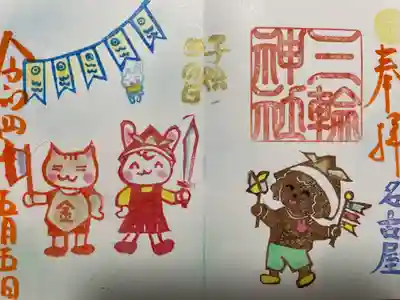 奉拝
名古屋
三輪
神社
子供の日
金
令和四年五月五日